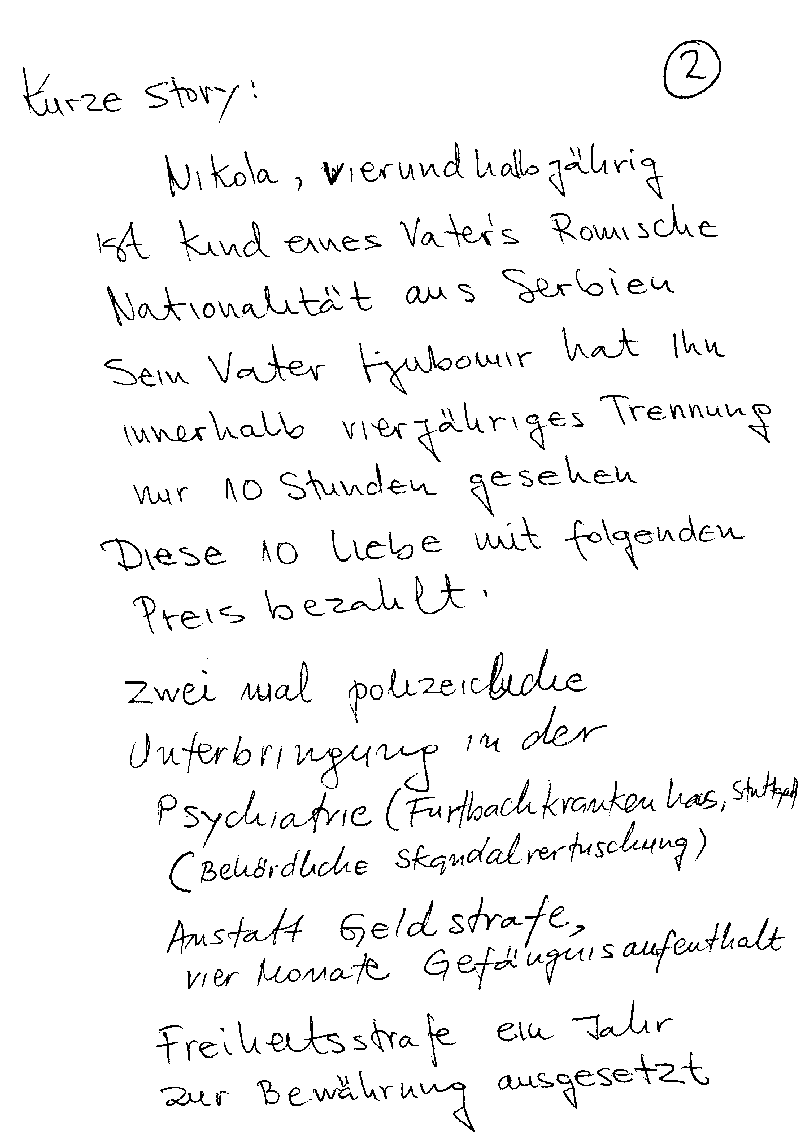 2
Kurze Story:
Nikola, vierundhalbjährig
ist Kind eines Vater's Romische
Nationalität aus Serbien
Sein Vater Ljubomir hat Ihn
innerhalb vierjähriges Trennung
nur 10 Stunden gesehen
Diese 10 Liebe mit folgenden
Preis bezahlt.
Zwei mal polizeiliche
Unterbringung in der
Psychiatrie (Furtbachkrankenhas, Stuttgart
(Behördliche Skandalvertuschung)
Anstatt Geldstrafe,
vier Monate Gefängnisaufenthalt
Freiheitsstrafe ein Jahr
zur Bewährung ausgesetzt